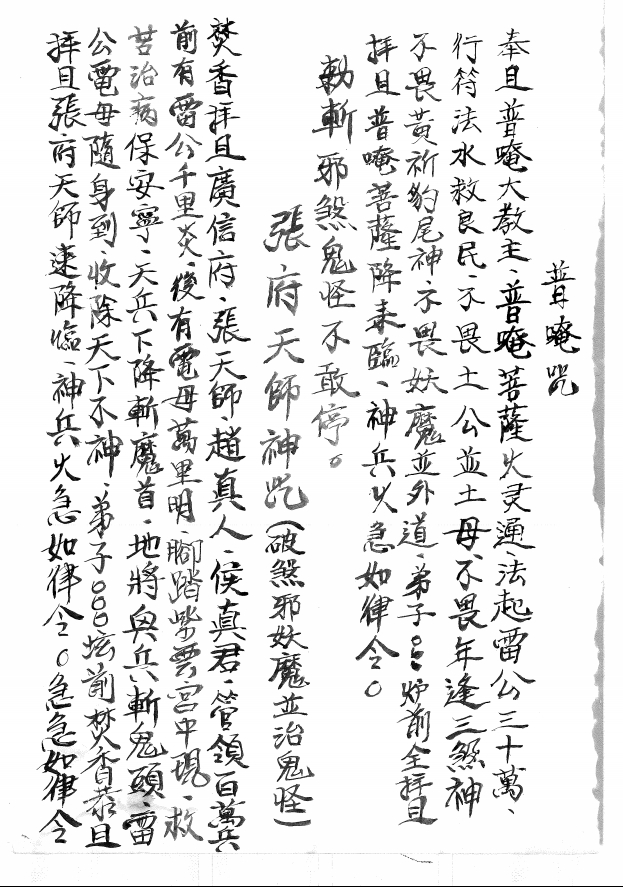 普唵咒
奉且普唵大教主、普唵菩薩火灵通、法起雷公三十萬、
行符法水救良民、不畏土公並土母、不畏年逢三煞神
不畏黃祈豹尾神、不畏妖魔並外道、弟子○○○炉前全拜且
拜且普唵菩薩降来臨、神兵火急如律令。
勅斬邪煞鬼怪不敢停。
張府天師神咒(破煞邪妖魔並治鬼怪)
焚香拜且廣信府、張天師趙真人、侯真君、管領百萬兵
前有雷公千里炎、後有電母萬里明、腳踏紫雲宮中現、救
苦治病保安寧、天兵下降斬魔首、地將與兵斬鬼頭、雷
公電母隨身到、收除天下不神、弟子○○○坛前焚香恭且
拜且張府天師速降臨、神兵火急如律令。急急如律令